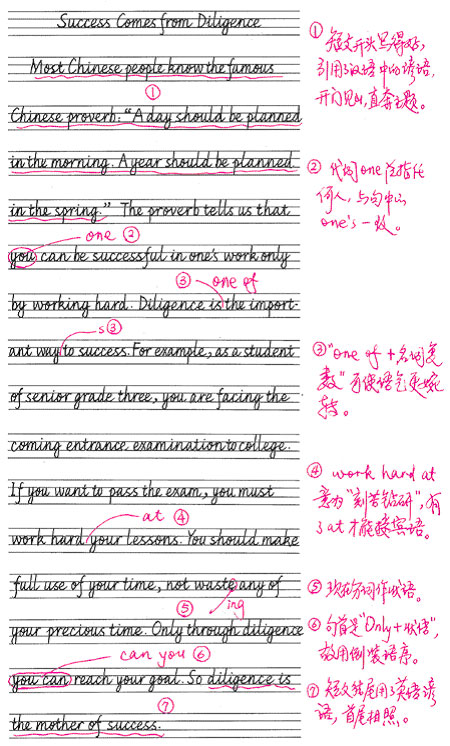 Success Comes from Diligence
Most Chinese people know the famous
①
Chinese proverb: "A day should be planned
in the morning. A year should be planned
in the spring." The proverb tells us that
one ②
you can be successful in one's work only
③ one of
by working hard. Diligence is the import-
s ③
ant way to success. For example, as a student
of senior grade three, you are facing the
coming entrance examination to college.
If you want to pass the exam, you must
at ④
work hard your lessons. You should make
full use of your time, not waste any of
⑤ ing
your precious time. Only through diligence
can you ⑥
you can reach your goal. So diligence is
⑦
the mother of success.
① 短文开头写得好,
引用了汉语中的谚语,
开门见山,直奔主题。
② 代词one泛指任
何人,与句中的
one's一致。
③ "one of + 名词复
数"可使语气更婉
转。
④ work hard at
意为"刻苦钻研",有
了at才能接宾语。
⑤ 现在分词作状语。
⑥ 句首是"Only+状语",
故用倒装语序。
⑦ 短文结尾用了英语谚
语,首尾相照。